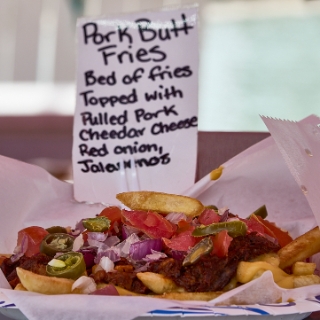 Pork Butt
Fries
Bed of fries
Topped with
Pulled Pork
Cheedar Cheese
Red onion,
Jalapenos